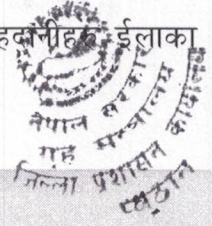 ईलाका
नेपाल सरकार
गृह मन्त्रालय
जिल्ला प्रशासन कार्यालय
प्यूठान